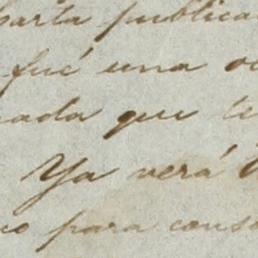 parta publica
fué una o
ada que te
Ya verá
no para cons